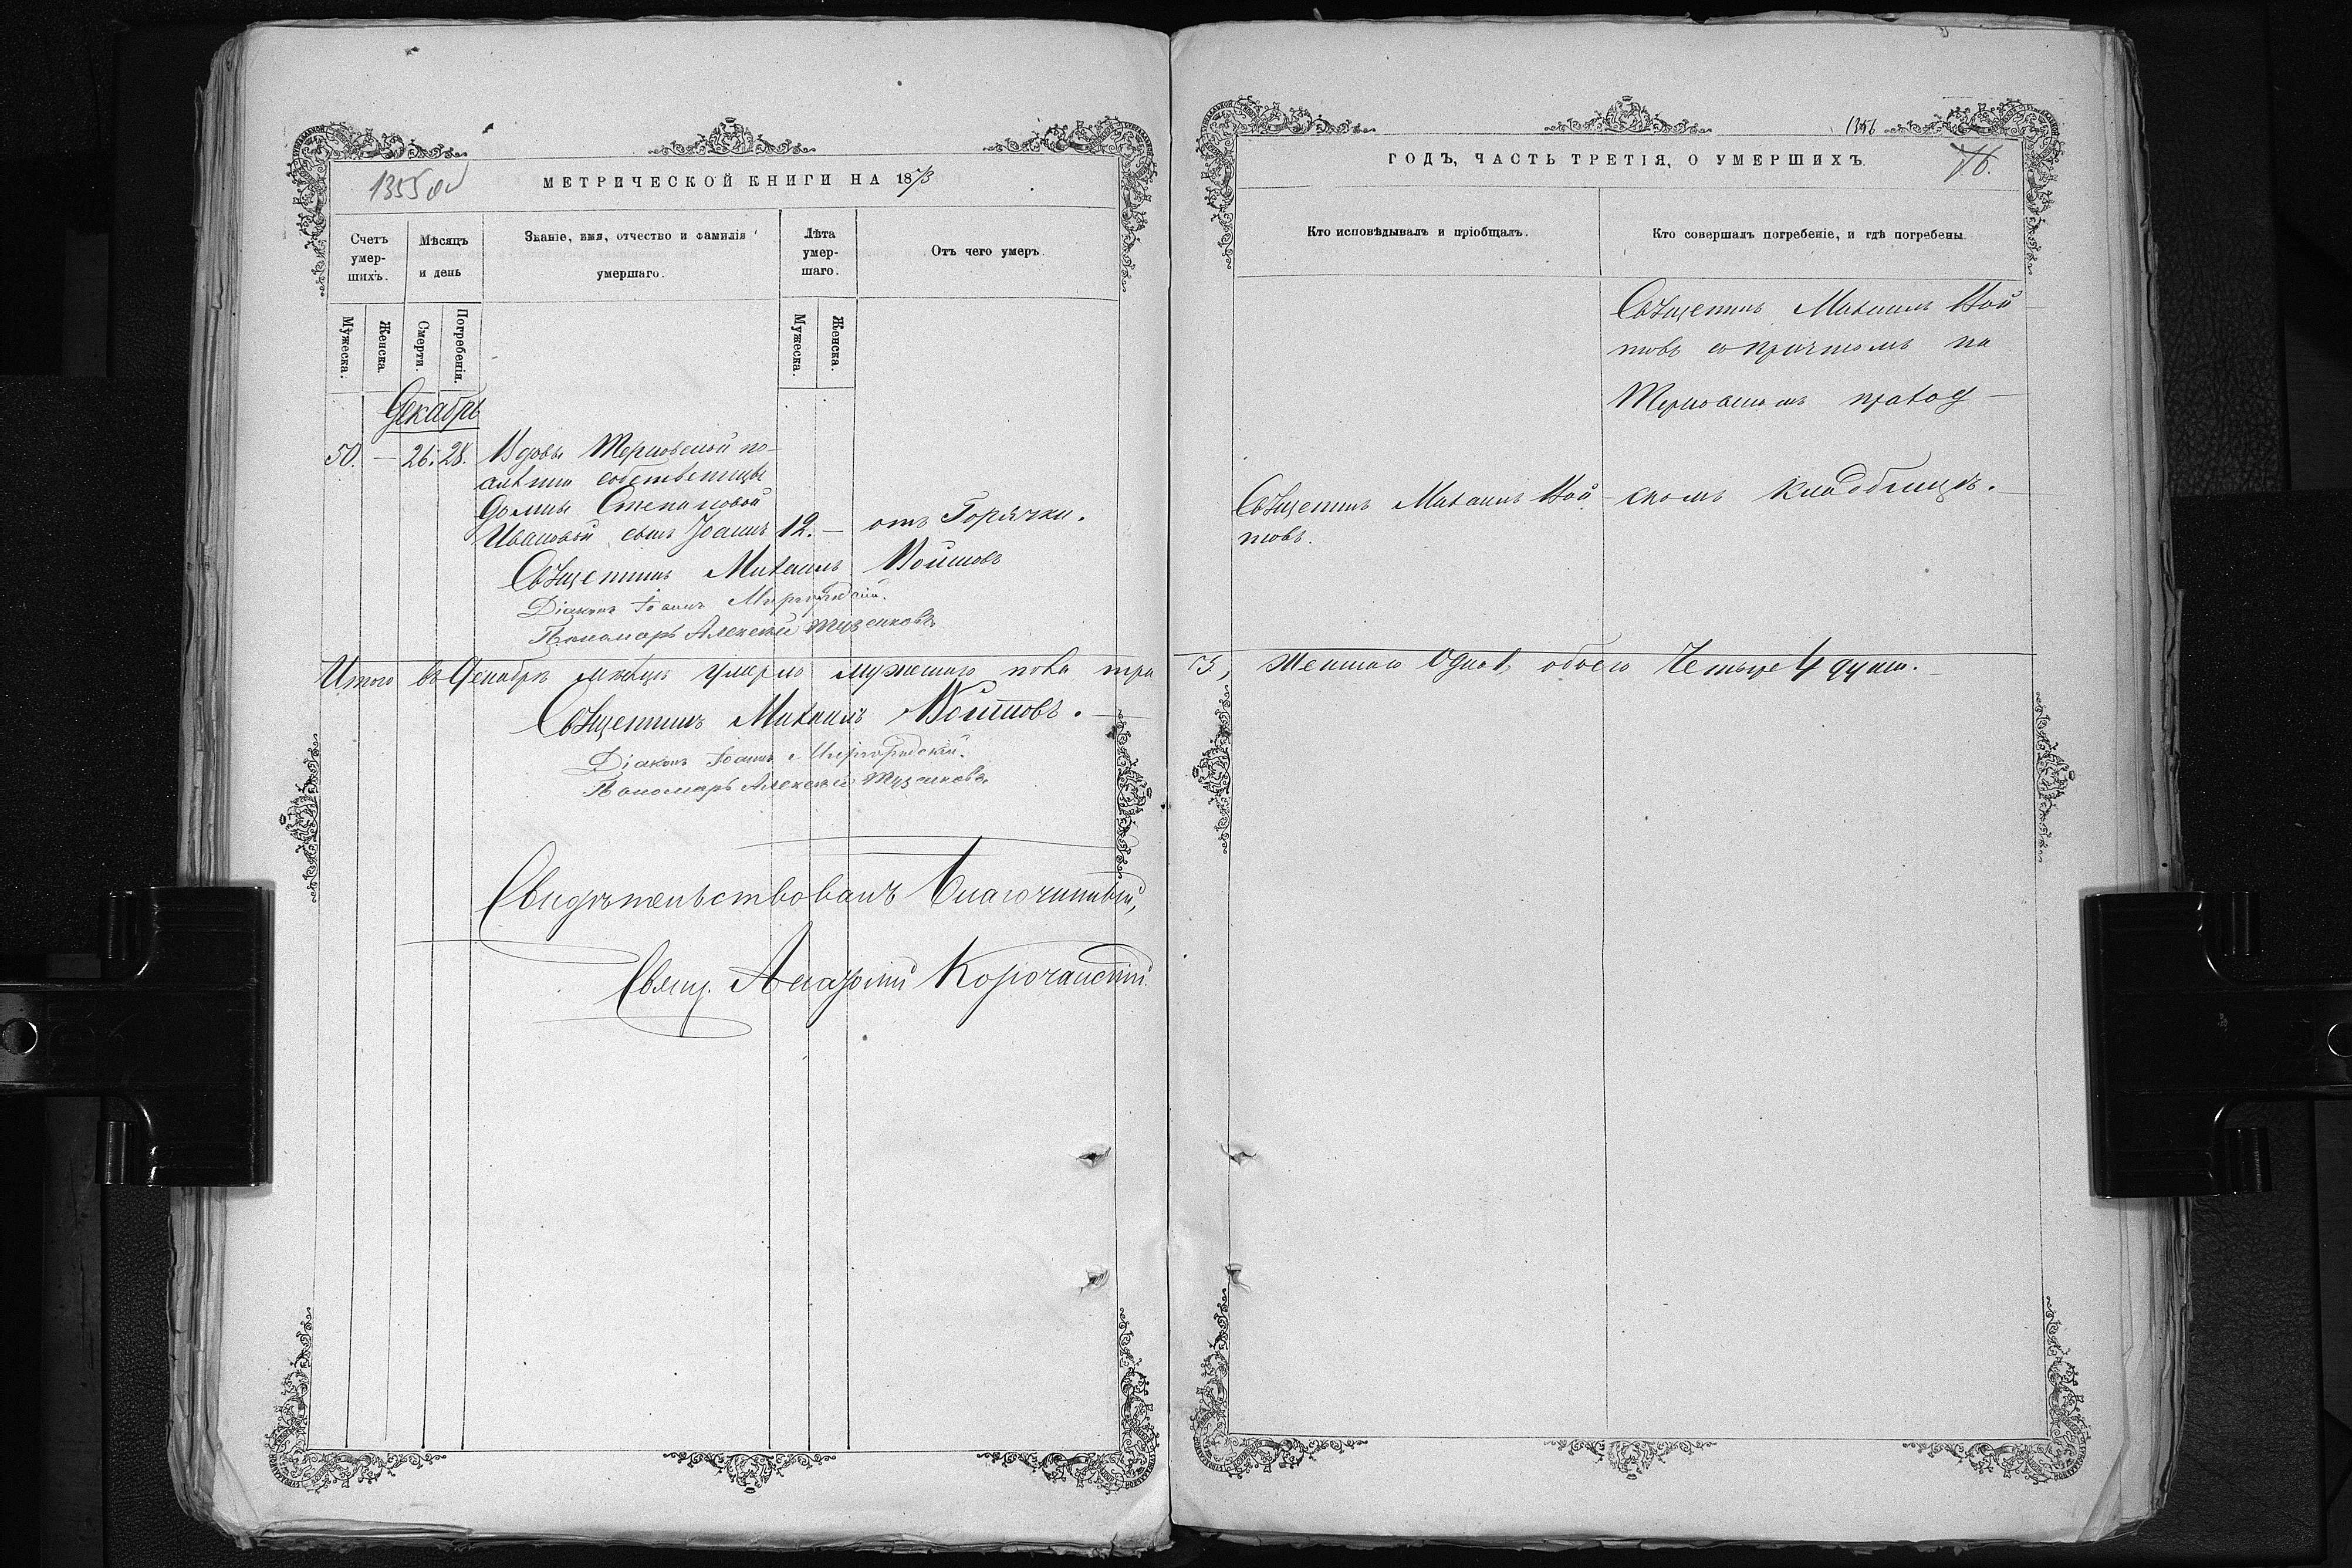 1355 об
МЕТРИЧЕСКОЙ КНИГИ НА 1873
Счетъ умер-шихъ.
Мѣсяцъ и день
Званіе, имя, отчество и фамилія умершаго.
Лѣта умер-шаго.
Отъ чего умеръ.
Мужеска.
Женска.
Смерти.
Погребенія.
Мужеска.
Женска.
Декабрь
50. — 26. 28. Вдовы Терновской по-
селянки собственницы
Домны Степановой
Ивановой сынъ Іоаннъ 12. — отъ Горячки.
Священникъ Михаилъ Войтовъ
Діаконъ Іоаннъ Миргородскій.
Пономарь Алексѣй
Итого въ Декабрѣ мѣсяцѣ умерло мужескаго пола три
Священникъ Михаилъ Войтовъ.
Діаконъ Іоаннъ Миргородскій.
Пономарь Алексѣй
Свидѣтельствовалъ Благочинный,
Свящ. Анатолій Корочанскій
1356
ГОДЪ, ЧАСТЬ ТРЕТІЯ, О УМЕРШИХЪ.
Кто исповѣдывалъ и пріобщалъ.
Кто совершалъ погребеніе, и гдѣ погребены.
Священникъ Михаилъ Вой-
товъ съ причтомъ на
Терновскомъ приход-
Священникъ Михаилъ Вой-
товъ.
скомъ кладбищѣ.
3, женскаго Одна 1, обоего Четыре 4 души.